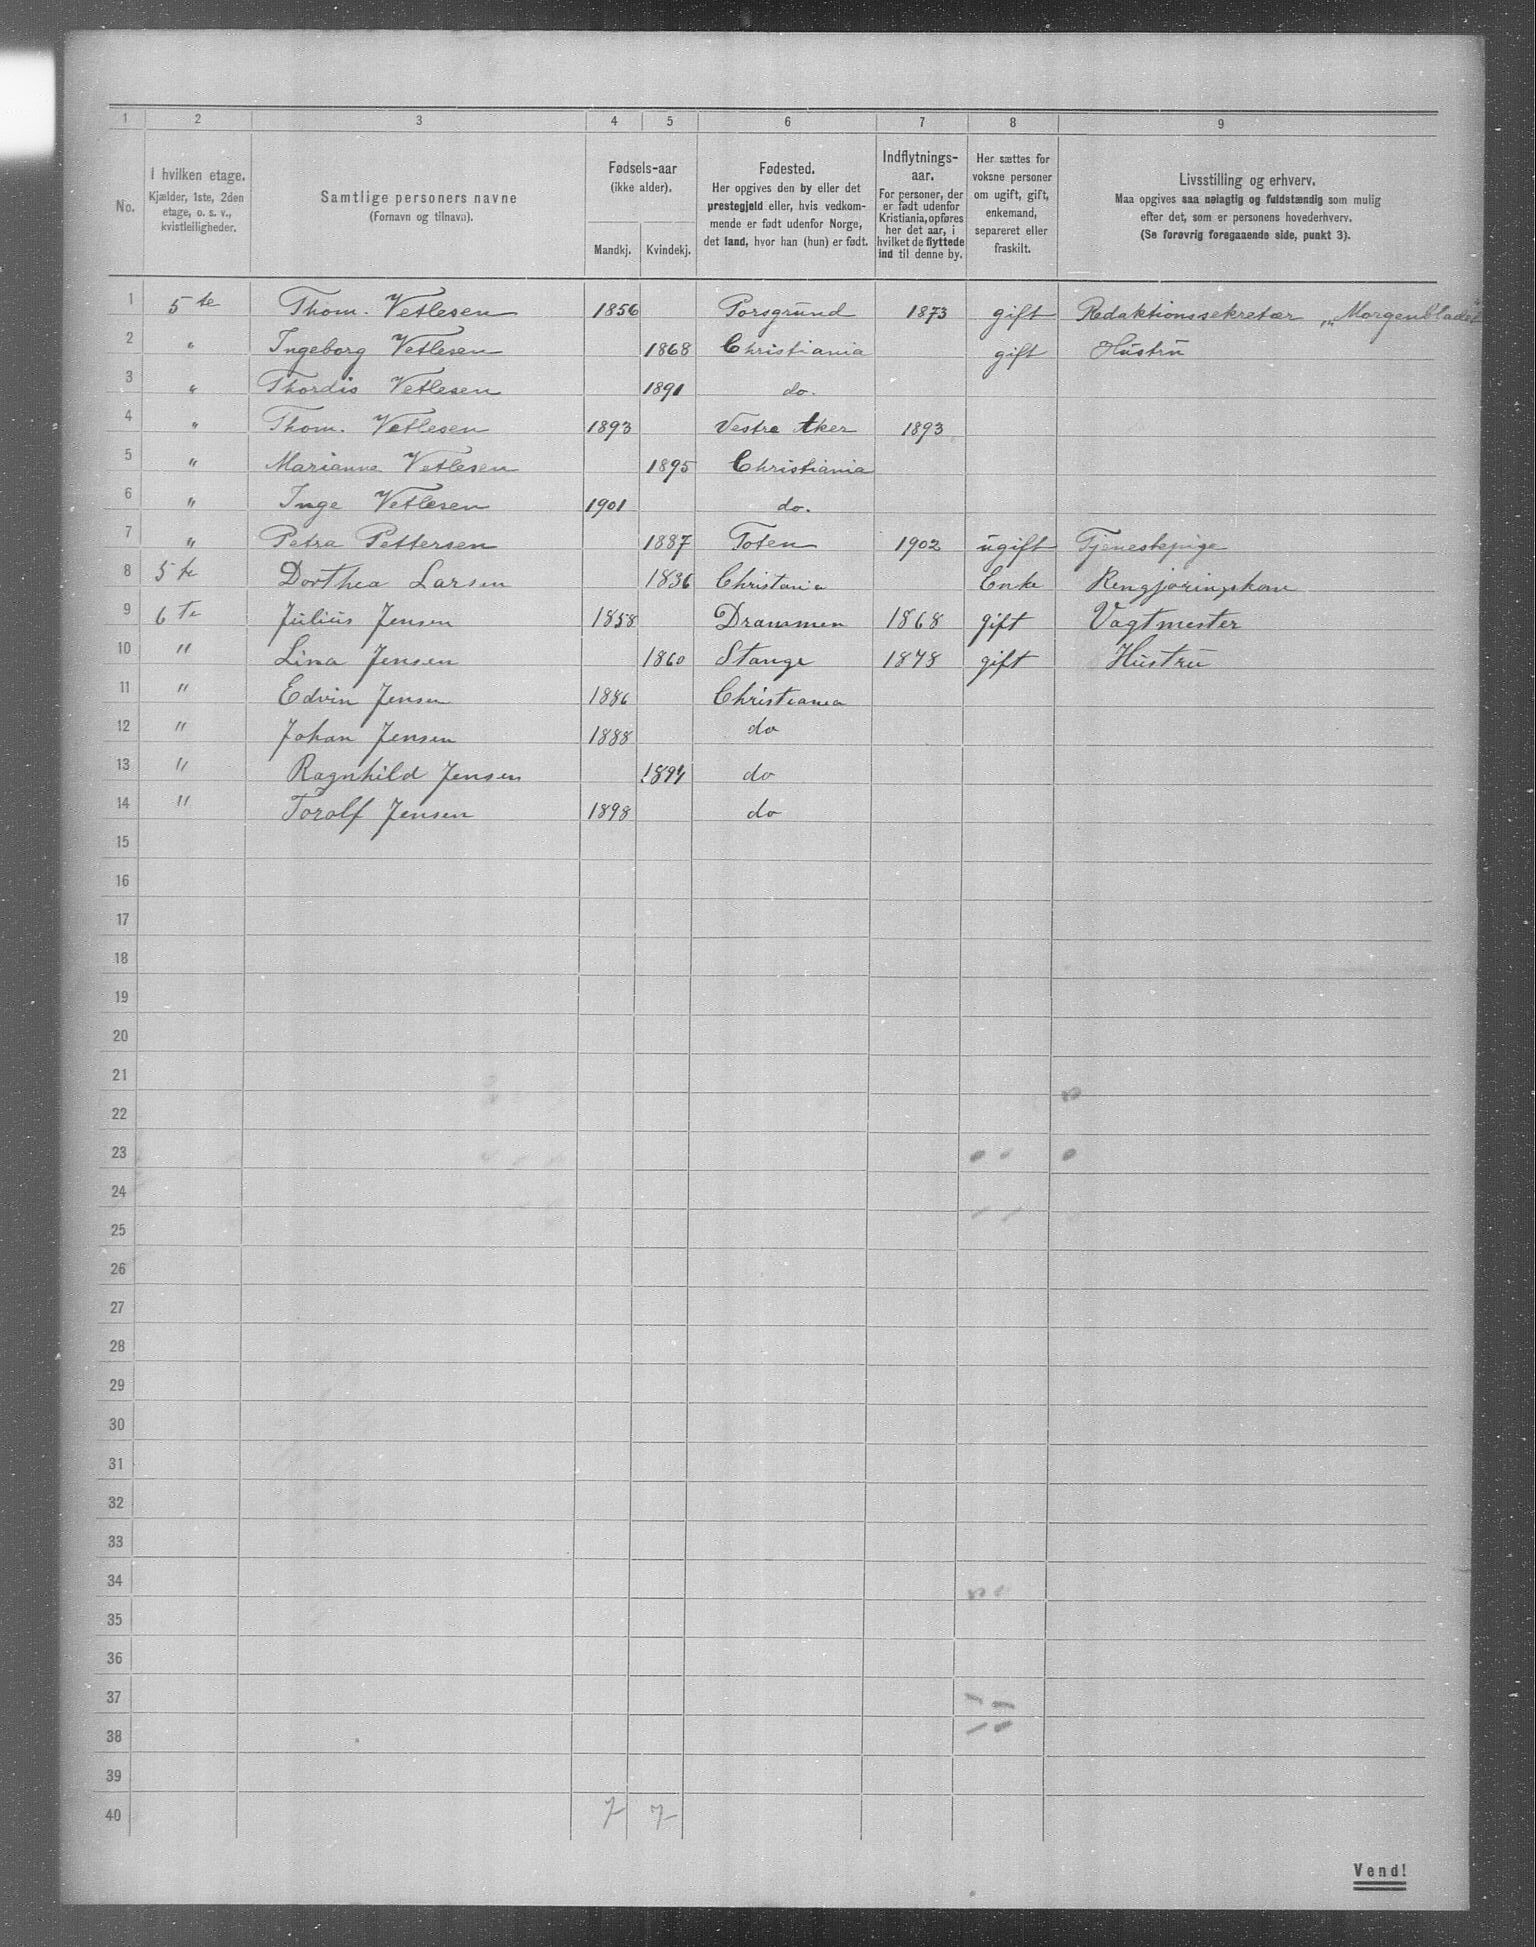 1 2 3 4 5 6 7 8 9
No.
I hvilken etage.
Kjælder, 1ste, 2den
etage, o. s. v.,
kvistleiligheder.
Samtlige personers navne
(Fornavn og tilnavn).
Fødsels-aar
(ikke alder).
Mandkj. Kvindekj.
Fødested.
Her opgives den by eller det
prestegjeld eller, hvis vedkom-
mende er født udenfor Norge,
det land, hvor han (hun) er født.
Indflytnings-
aar.
For personer, der
er født udenfor
Kristiania, opføres
her det aar, i
hvilket de flyttede
ind til denne by.
Her sættes for
voksne personer
om ugift, gift,
enkemand,
separeret eller
fraskilt.
Livsstilling og erhverv.
Maa opgives saa nøiagtig og fuldstændig som mulig
efter det, som er personens hovederhverv.
(Se forøvrig foregaaende side, punkt 3).
1 5te Thom. Vetlesen 1856 Porsgrund 1873 gift Redaktionssekretær „Morgenbladet"
2 " Ingeborg Vetlesen 1868 Christiania gift Hustru
3 " Thordis Vetlesen 1891 do.
4 " Thom. Vetlesen 1893 Vestre Aker 1893
5 " Marianne Vetlesen 1895 Christiania
6 " Inge Vetlesen 1901 do.
7 " Petra Pettersen 1887 Toten 1902 ugift Tjenestepige
8 5te Dorthea Larsen 1836 Christania Enke Rengjøringskone
9 6te Julius Jensen 1858 Drammen 1868 gift Vagtmester
10 " Lina Jensen 1860 Stange 1878 gift Hustru
11 " Edvin Jensen 1886 Christiania
12 " Johan Jensen 1888 do
13 " Ragnhild Jensen 1894 do
14 " Torolf Jensen 1898 do
15
16
17
18
19
20
21
22
23
24
25
26
27
28
29
30
31
32
33
34
35
36
37
38
39
40 7 7
Vend!